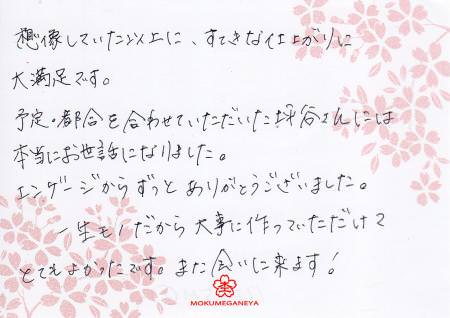 想像していた以上に、すてきな仕上がりに
大満足です。
予定・都合を合わせていただいた坪谷さんには
本当にお世話になりました。
エンゲージからずっとありがとうございました。
一生モノだから大事に作っていただけて
とてもよかったです。また会いに来ます!
MOKUMEGANEYA